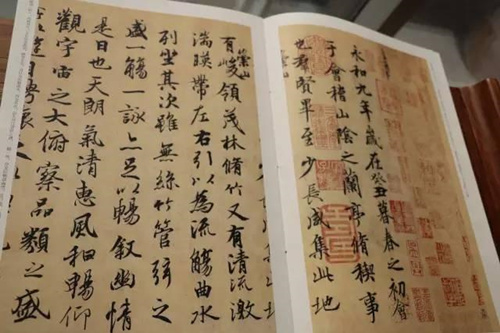 永和九年歲在癸丑暮春之初會
于會稽山陰之蘭亭脩稧事
也羣賢畢至少長咸集此地
崇山
崇山
有峻領茂林脩竹又有清流激
湍暎帶左右引以為流觴曲水
列坐其次雖無絲竹管弦之
盛一觴一詠亦足以暢敘幽情
是日也天朗氣清惠風和暢仰
觀宇宙之大俯察品類之盛
遊目騁懷